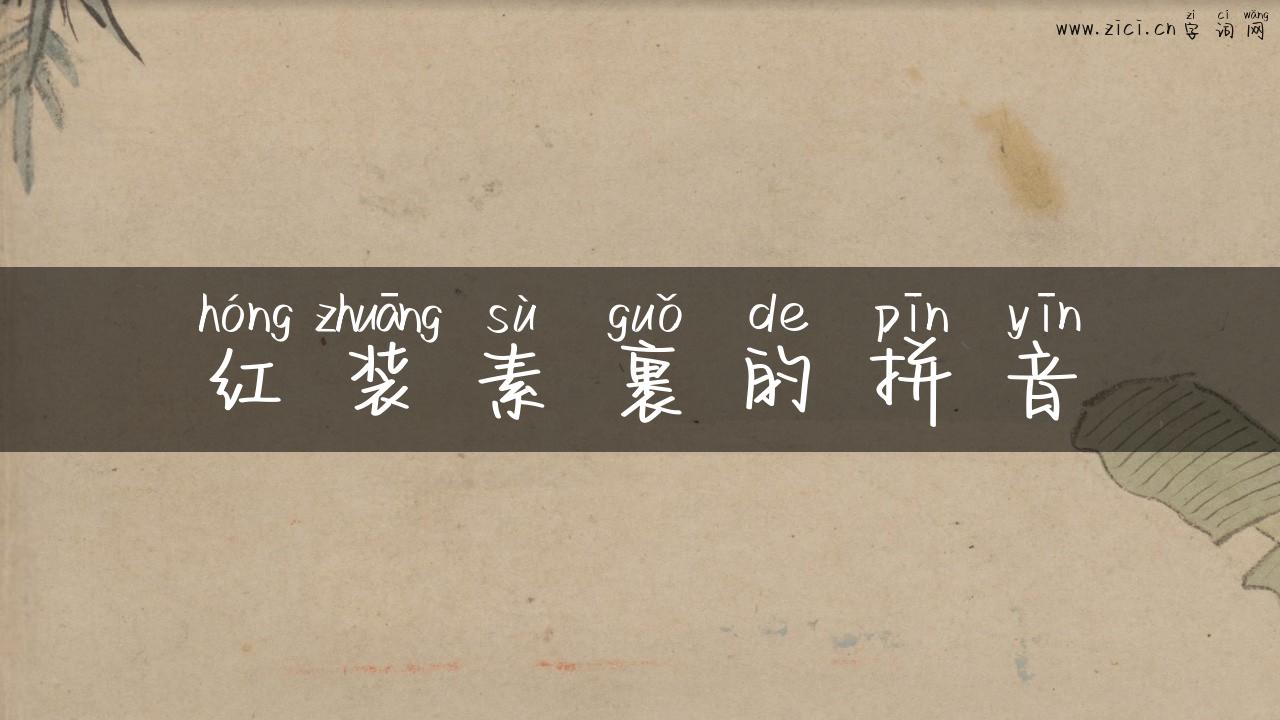 zì cí wǎng
www.zici.cn 字 词 网
hóng zhuāng sù guǒ de pīn yīn
红 装 素 裹 的 拼 音